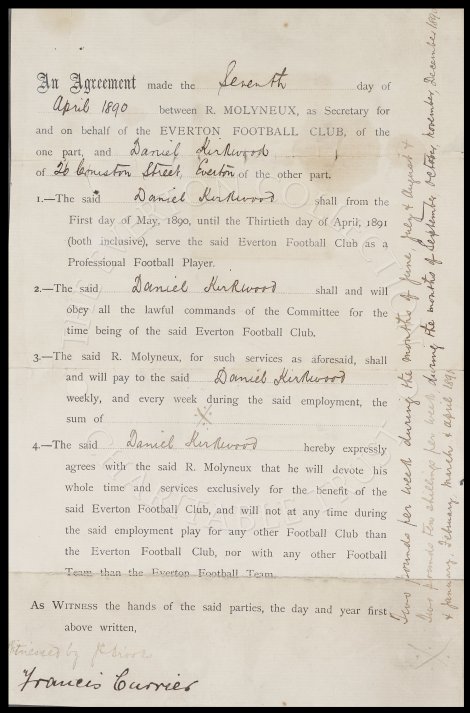 An Agreement made the Seventh day of
April 1890 between R. MOLYNEUX, as Secretary for
and on behalf of the EVERTON FOOTBALL CLUB, of the
one part, and Daniel Kirkwood
of 26 Coniston Street, Everton of the other part.
1.—The said Daniel Kirkwood shall from the
First day of May, 1890, until the Thirtieth day of April, 1891
(both inclusive), serve the said Everton Football Club as a
Professional Football Player.
2.—The said Daniel Kirkwood shall and will
obey all the lawful commands of the Committee for the
time being of the said Everton Football Club.
3.—The said R. Molyneux, for such services as aforesaid, shall
and will pay to the said Daniel Kirkwood
weekly, and every week during the said employment, the
sum of
4.—The said Daniel Kirkwood hereby expressly
agrees with the said R. Molyneux that he will devote his
whole time and services exclusively for the benefit of the
said Everton Football Club, and will not at any time during
the said employment play for any other Football Club than
the Everton Football Club, nor with any other Football
Team than the Everton Football Team.
As WITNESS the hands of the said parties, the day and year first
above written,
Witnessed by
Francis Currier
Two pounds per week during the months of June July & August &
Two pounds Ten shillings per week during the months of September October, November, December 1890
& January February March & April 1891